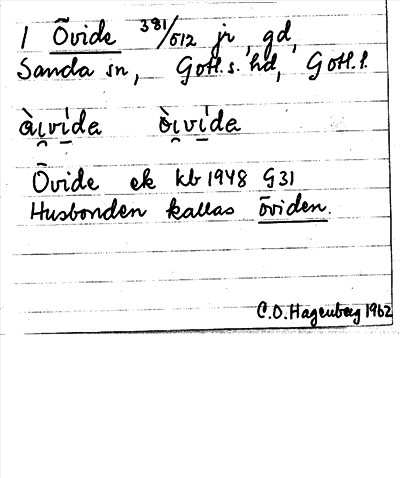 1 Övide 381/512 jr, gd,
Sanda sn, Gotl.s. hd, Gotl.l.
àı̯vı́da òı̯vı́da
Övide ek kb 1948 G31
Husbonden kallas öviden.
C.O. Hagenberg 1962